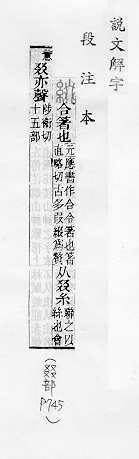 說文解字
段注本
綴合著也元應書作合令著也著直略切古多叚綴爲贅从叕糸聯之以絲也會
意叕亦聲陟衛切十五部
(叕部 P745)